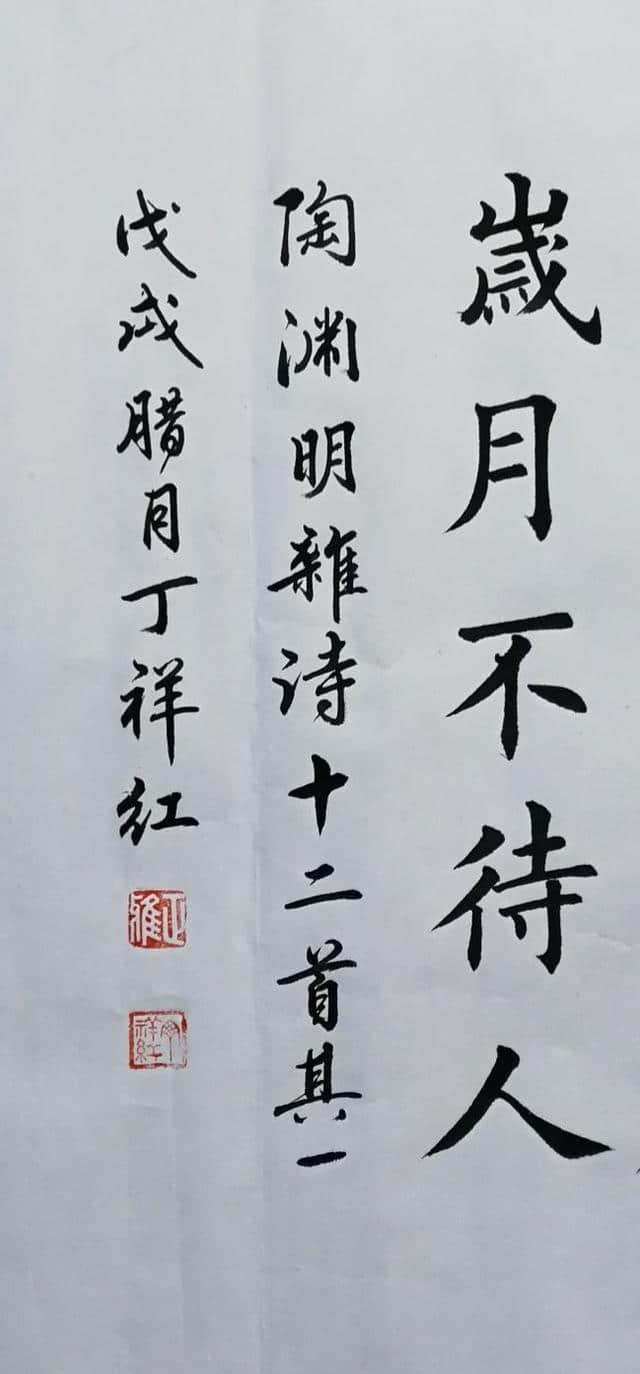 歲月不待人
陶渊明雜诗十二首其一
戊戌腊月丁祥红